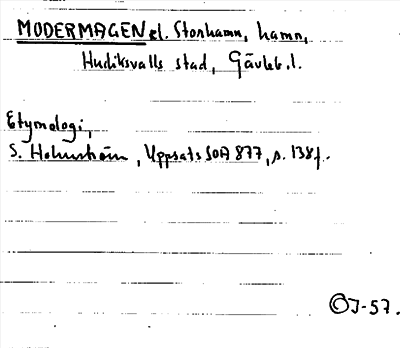 MODERMAGEN el. Storhamn, hamn,
Hudiksvalls stad, Gävleb. l.
Etymologi,
S. Holmström, Uppsats SOA 877, s. 138f.
OJ-57.